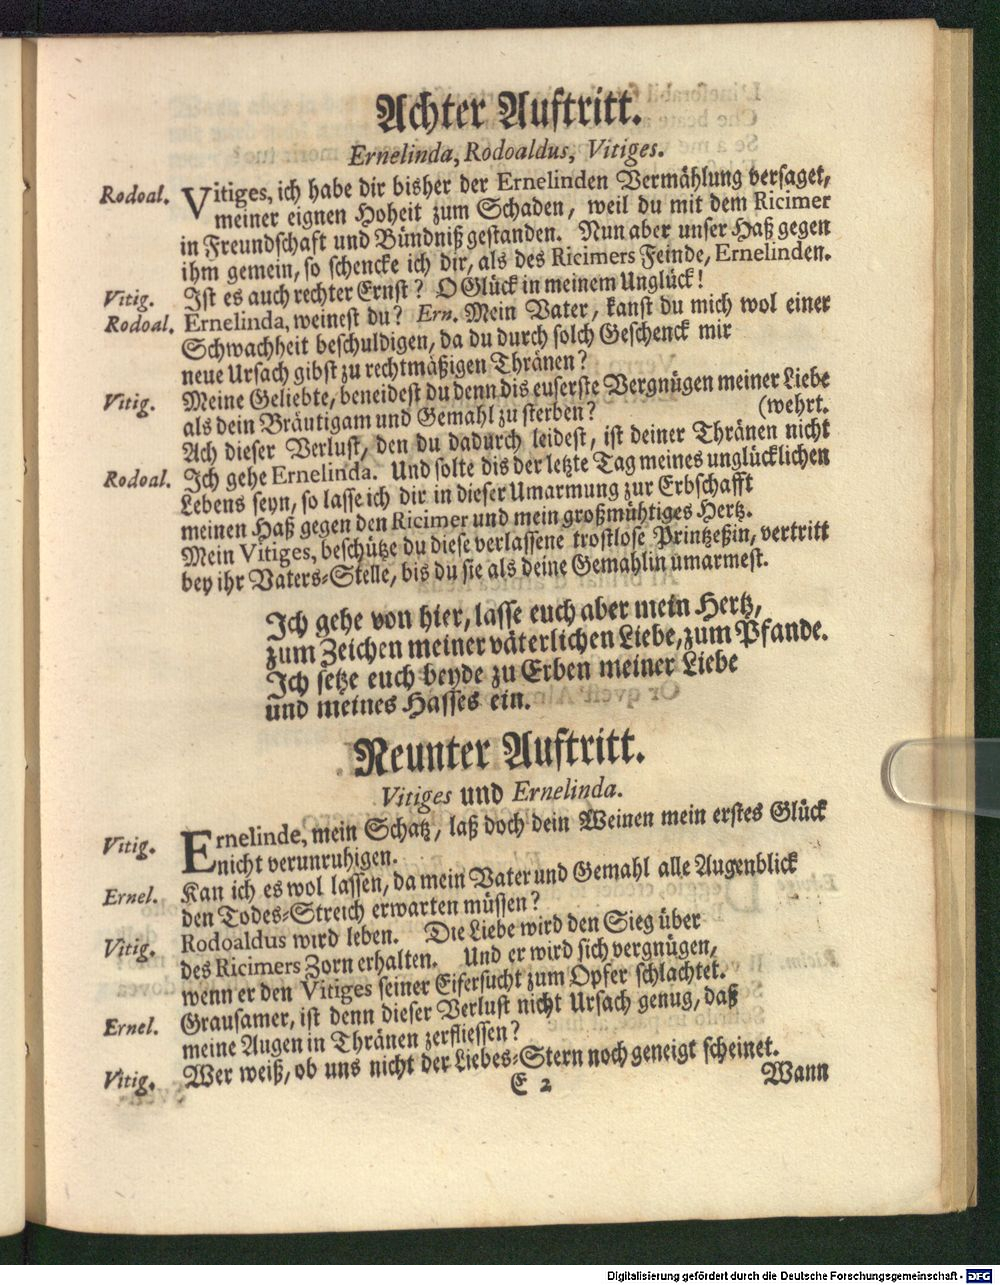 Achter Auftritt.
Ernelinda, Rodoaldus, Vitiges.
Rodoal. Vitiges, ich habe dir bisher der Ernelinden Vermählung versaget,
meiner eignen Hoheit zum Schaden, weil du mit dem Ricimer
in Freundschaft und Bündniß gestanden. Nun aber unser Haß gegen
ihm gemein, so schencke ich dir, als des Ricimers Feinde, Ernelinden.
Vitig. Ist es auch rechter Ernst? O Glück in meinem Unglück!
Rodoal. Ernelinda, weinest du? Ern. Mein Vater, kanst du mich wol einer
Schwachheit beschuldigen, da du durch solch Geschenck mir
neue Ursach gibst zu rechtmäßigen Thränen?
Vitig. Meine Geliebte, beneidest du denn dis euserste Vergnügen meiner Liebe
als dein Bräutigam und Gemahl zu sterben? (wehrt.
Ach dieser Verlust, den du dadurch leidest, ist deiner Thränen nicht
Rodoal. Ich gehe Ernelinda. Und solte dis der letzte Tag meines unglücklichen
Lebens seyn, so lasse ich dir in dieser Umarmung zur Erbschafft
meinen Haß gegen den Ricimer und mein großmühtiges Hertz.
Mein Vitiges, beschütze du diese verlassene trostlose Printzeßin, vertritt
bey ihr Vaters-Stelle, bis du sie als deine Gemahlin umarmest.
Ich gehe von hier, lasse euch aber mein Hertz,
zum Zeichen meiner väterlichen Liebe, zum Pfande.
Ich setze euch beyde zu Erben meiner Liebe
und meines Hasses ein.
Neunter Auftritt.
Vitiges und Ernelinda.
Vitig. Ernelinde, mein Schatz, laß doch dein Weinen mein erstes Glück
nicht verunruhigen.
Ernel. Kan ich es wol lassen, da mein Vater und Gemahl alle Augenblick
den Todes-Streich erwarten müssen?
Vitig. Rodoaldus wird leben. Die Liebe wird den Sieg über
des Ricimers Zorn erhalten. Und er wird sich vergnügen,
wenn er den Vitiges seiner Eifersucht zum Opfer schlachtet.
Ernel. Grausamer, ist denn dieser Verlust nicht Ursach genug, daß
meine Augen in Thränen zerfliessen?
Vitig. Wer weiß, ob uns nicht der Liebes-Stern noch geneigt scheinet.
E 2 Wann
Digitalisierung gefördert durch die Deutsche Forschungsgemeinschaft - DFG